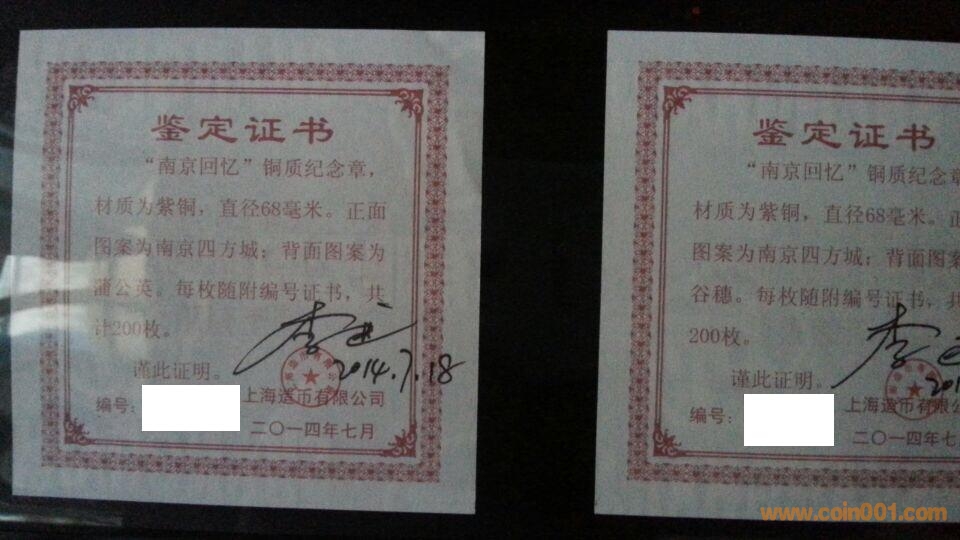 鉴定证书
“南京回忆”铜质纪念章，
材质为紫铜，直径68毫米。正面
图案为南京四方城；背面图案为
蒲公英。每枚随附编号证书，共
计200枚。
谨此证明。
2014.7.18
编号：
上海造币有限公司
二〇一四年七月
鉴定证书
“南京回忆”铜质纪念章
材质为紫铜，直径68毫米。正
图案为南京四方城；背面图案
谷穗。每枚随附编号证书，共
200枚。
谨此证明。
编号：
上海造币有限公
二〇一四年七
www.coin001.com